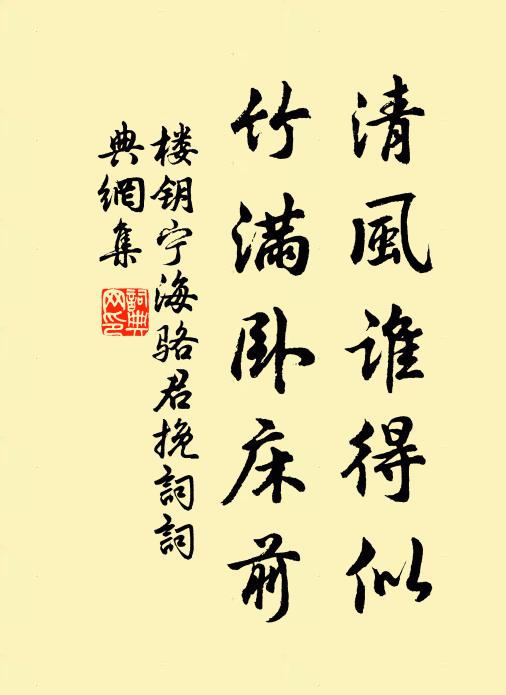 清風誰得似
竹滿臥床前
楼钥宁海骆君挽詞詞
典網集
詞典网印